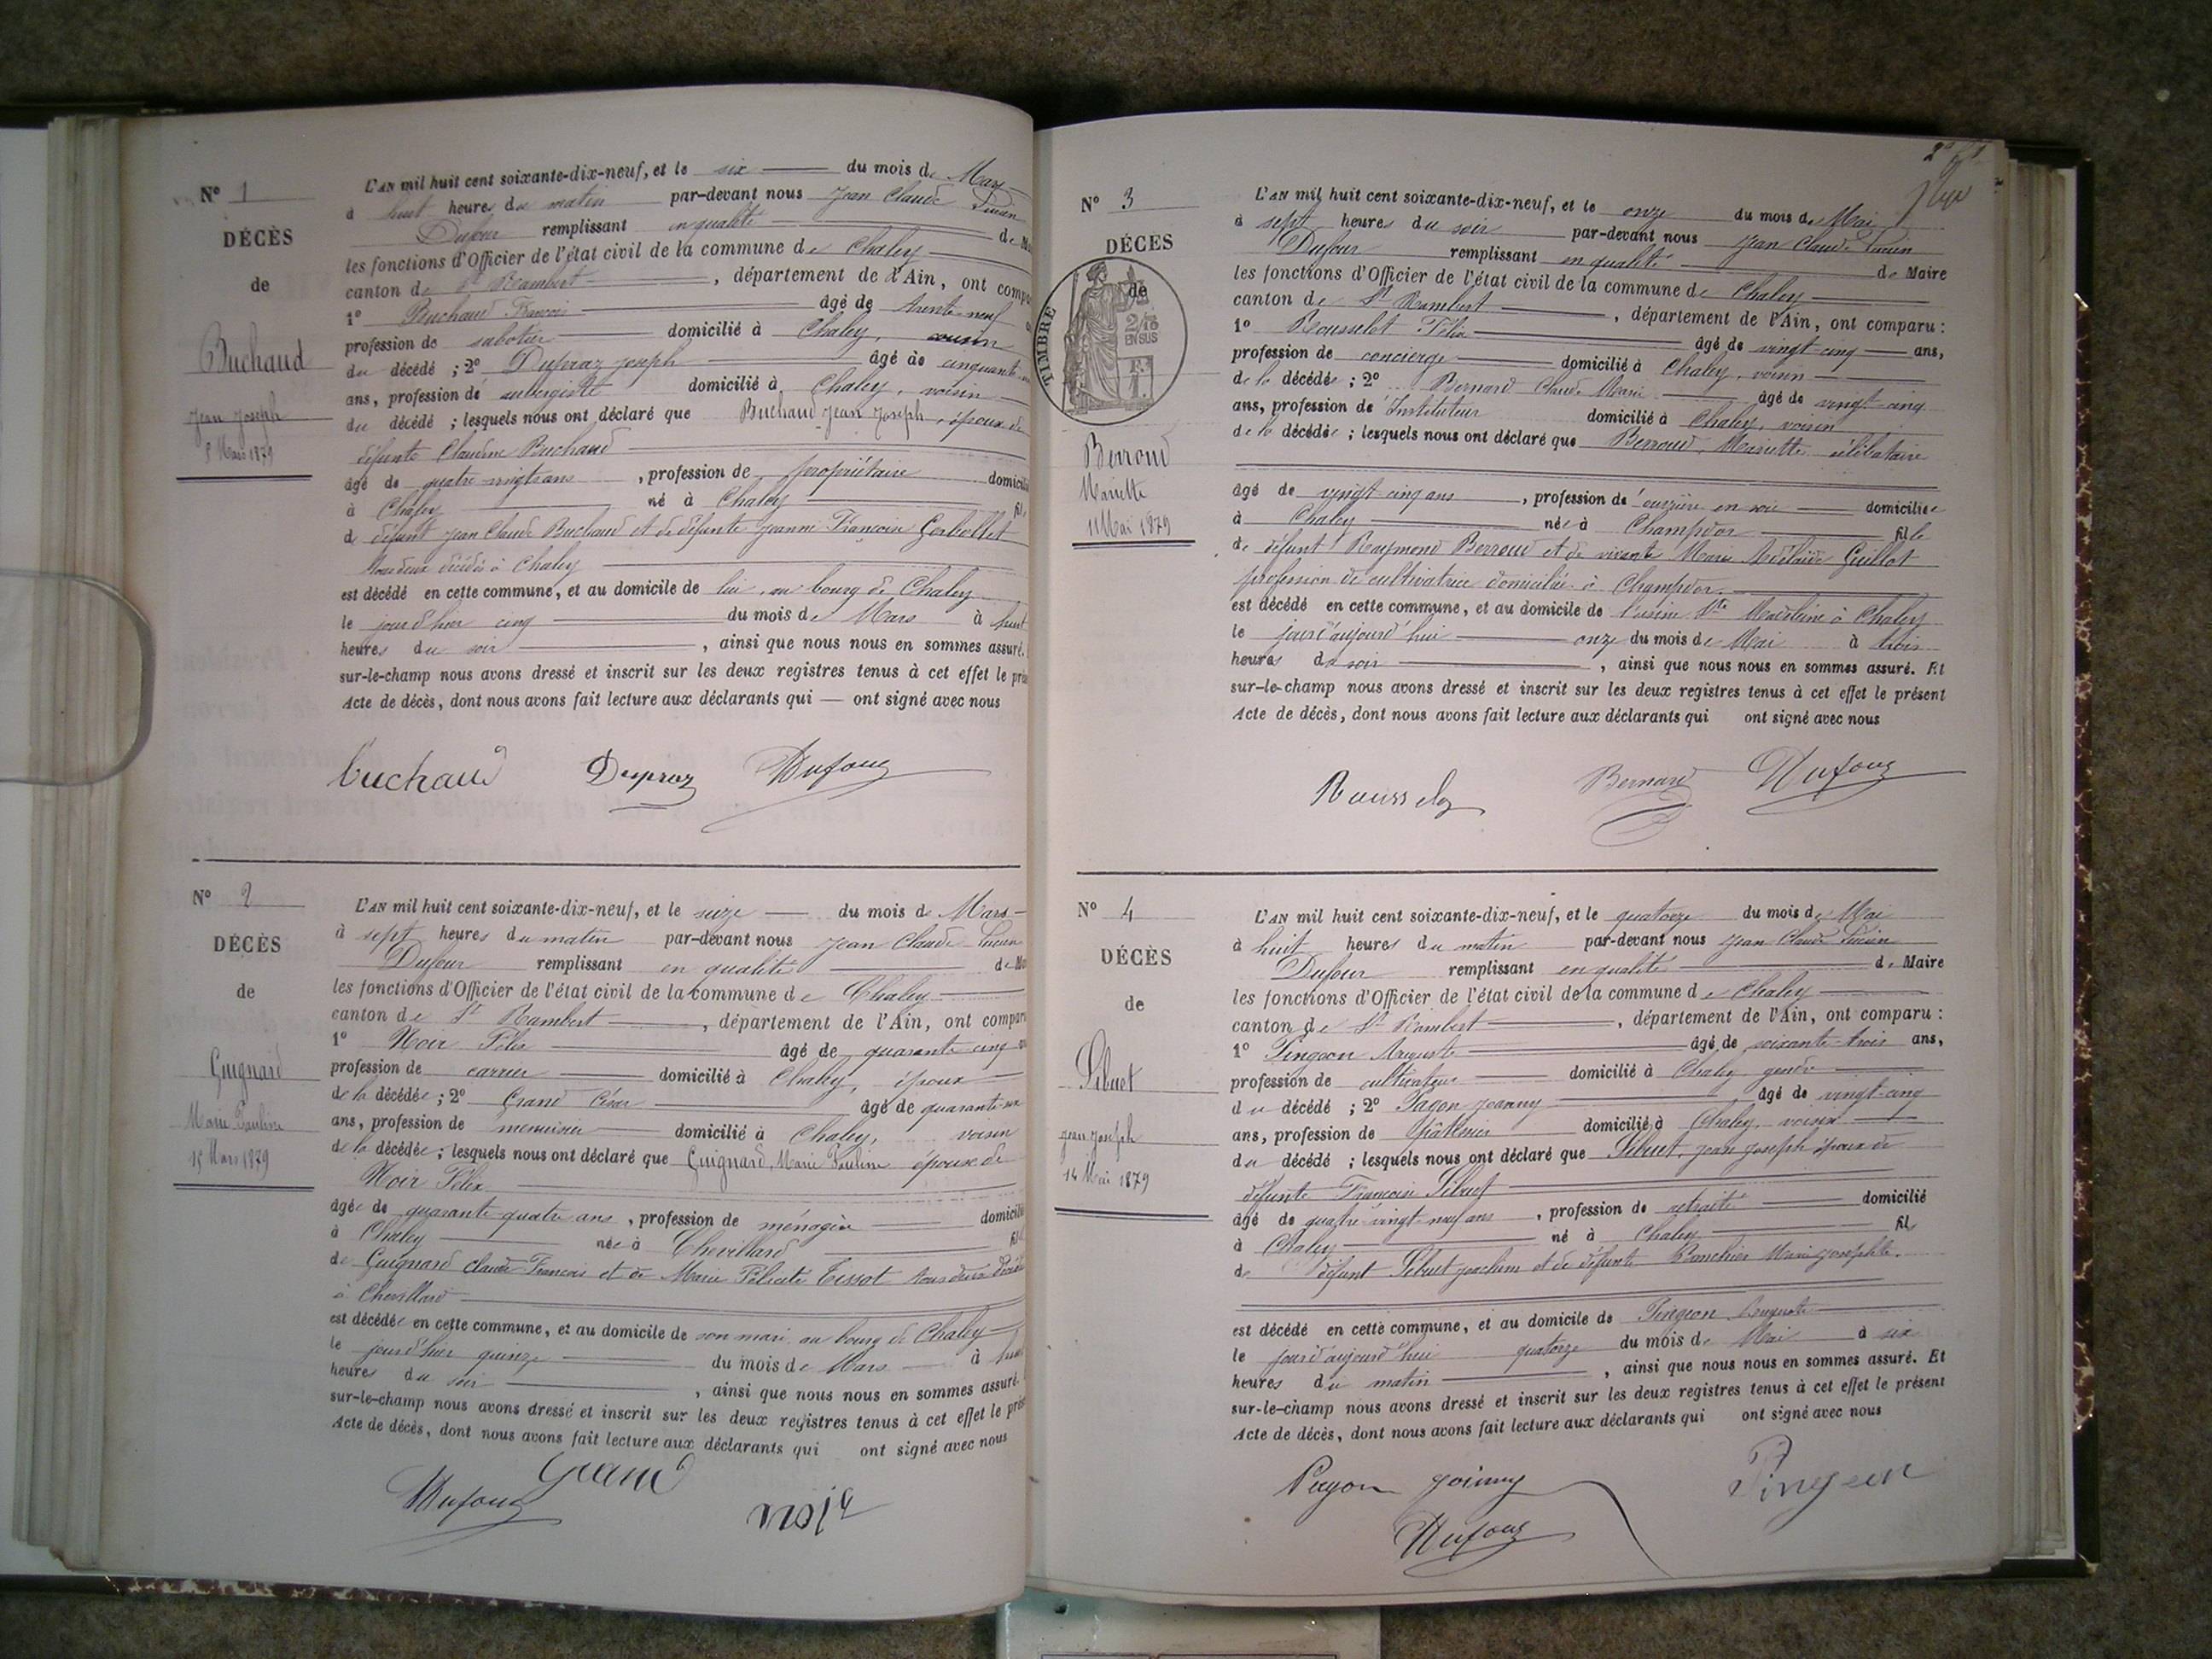 Nº 1
DÉCÈS
de
Buchaud
Jean Joseph
5 Mars 1879
L'AN mil huit cent soixante-dix-neuf, et le six du mois de Mars
à huit heures du matin par-devant nous Jean Claude Lucien
Dufour remplissant en qualité de
les fonctions d'Officier de l'état civil de la commune de Chaley
canton de St Rambert, département de l'Ain, ont
1º Buchaud François âgé de trente-neuf
profession de sabotier domicilié à Chaley, cousin
du décédé ; 2º Dupraz Joseph âgé de cinquante
ans, profession de aubergiste domicilié à Chaley, voisin
du décédé ; lesquels nous ont déclaré que Buchaud Jean Joseph, époux de
défunte Claudine Buchaud
âgé de quatre-vingts ans, profession de propriétaire
à Chaley né à Chaley fils
de défunt Jean Claude Buchaud et de défunte Jeanne Françoise Gorbollet
tous deux décédés à Chaley
est décédé en cette commune, et au domicile de lui, au bourg de Chaley
le jour d'hier cinq du mois de Mars à huit
heures du soir, ainsi que nous nous en sommes assuré.
sur-le-champ nous avons dressé et inscrit sur les deux registres tenus à cet effet le
Acte de décès, dont nous avons fait lecture aux déclarants qui — ont signé avec nous
buchaud Dupraz Dufour
Nº 2
DÉCÈS
de
Guignard
Marie Pauline
15 Mars 1879
L'AN mil huit cent soixante-dix-neuf, et le seize du mois de Mars
à sept heures du matin par-devant nous Jean Claude Lucien
Dufour remplissant en qualité de
les fonctions d'Officier de l'état civil de la commune de Chaley
canton de St Rambert, département de l'Ain, ont
1º Noir Félix âgé de quarante cinq
profession de carrier domicilié à Chaley, époux
de la décédée ; 2º Grand César âgé de quarante-un
ans, profession de menuisier domicilié à Chaley, voisin
de la décédée ; lesquels nous ont déclaré que Guignard, Marie Pauline épouse de
Noir Félix
âgée de quarante quatre ans, profession de ménagère
à Chaley née à Chevillard
de Guignard Claude François et de Marie Félicité Tissot tous deux
à Chevillard
est décédée en cette commune, et au domicile de son mari au bourg de Chaley
le jour d'hier quinze du mois de Mars à
heures du soir, ainsi que nous nous en sommes assuré.
sur-le-champ nous avons dressé et inscrit sur les deux registres tenus à cet effet le
Acte de décès, dont nous avons fait lecture aux déclarants qui ont signé avec nous
Dufour Grand noir
2e
Nº 3
DÉCÈS
de
TIMBRE
2/10
EN SUS
Berroud
Mariette
11 Mai 1879
L'AN mil huit cent soixante-dix-neuf, et le onze du mois de Mai
à sept heures du soir par-devant nous Jean Claude Lucien
Dufour remplissant en qualité de Maire
les fonctions d'Officier de l'état civil de la commune de Chaley
canton de St Rambert, département de l'Ain, ont comparu :
1º Rousselet Félix âgé de vingt-cinq ans,
profession de concierge domicilié à Chaley, voisin
de la décédée ; 2º Bernard Claude Marie âgé de vingt-cinq
ans, profession de Instituteur domicilié à Chaley, voisin
de la décédée ; lesquels nous ont déclaré que Berroud, Mariette célibataire
âgé de vingt cinq ans, profession d'ouvrière en soie domiciliée
à Chaley née à Champdor fille
de défunt Raymond Berroud et de vivante Marie Adélaïde Guillot
profession de cultivatrice domiciliée à Champdor.
est décédé en cette commune, et au domicile de l'usine Ste Madeleine à Chaley
le jour d'aujourd'hui onze du mois de Mai à trois
heures du soir, ainsi que nous nous en sommes assuré. Et
sur-le-champ nous avons dressé et inscrit sur les deux registres tenus à cet effet le présent
Acte de décès, dont nous avons fait lecture aux déclarants qui ont signé avec nous
Bernard Dufour
Nº 4
DÉCÈS
de
Sibuet
Jean Joseph
14 Mai 1879
L'AN mil huit cent soixante-dix-neuf, et le quatorze du mois de Mai
à huit heures du matin par-devant nous Jean Claude Lucien
Dufour remplissant en qualité de Maire
les fonctions d'Officier de l'état civil de la commune de Chaley
canton de St Rambert, département de l'Ain, ont comparu :
1º Pingeon Auguste âgé de soixante-trois ans,
profession de cultivateur domicilié à Chaley gendre
du décédé ; 2º Pagon Joanny âgé de vingt-cinq
ans, profession de plâtrier domicilié à Chaley, voisin
du décédé ; lesquels nous ont déclaré que Sibuet, Jean Joseph époux de
défunte Françoise Sibuet
âgé de quatre-vingt-neuf ans, profession de retraité domicilié
à Chaley né à Chaley fils
de défunt Sibuet Joachim et de défunte Marie Josephte.
est décédé en cette commune, et au domicile de Pingeon Auguste
le jour d'aujourd'hui quatorze du mois de Mai à six
heures du matin, ainsi que nous nous en sommes assuré. Et
sur-le-champ nous avons dressé et inscrit sur les deux registres tenus à cet effet le présent
Acte de décès, dont nous avons fait lecture aux déclarants qui ont signé avec nous
Pagon joanny Pingeon
Dufour